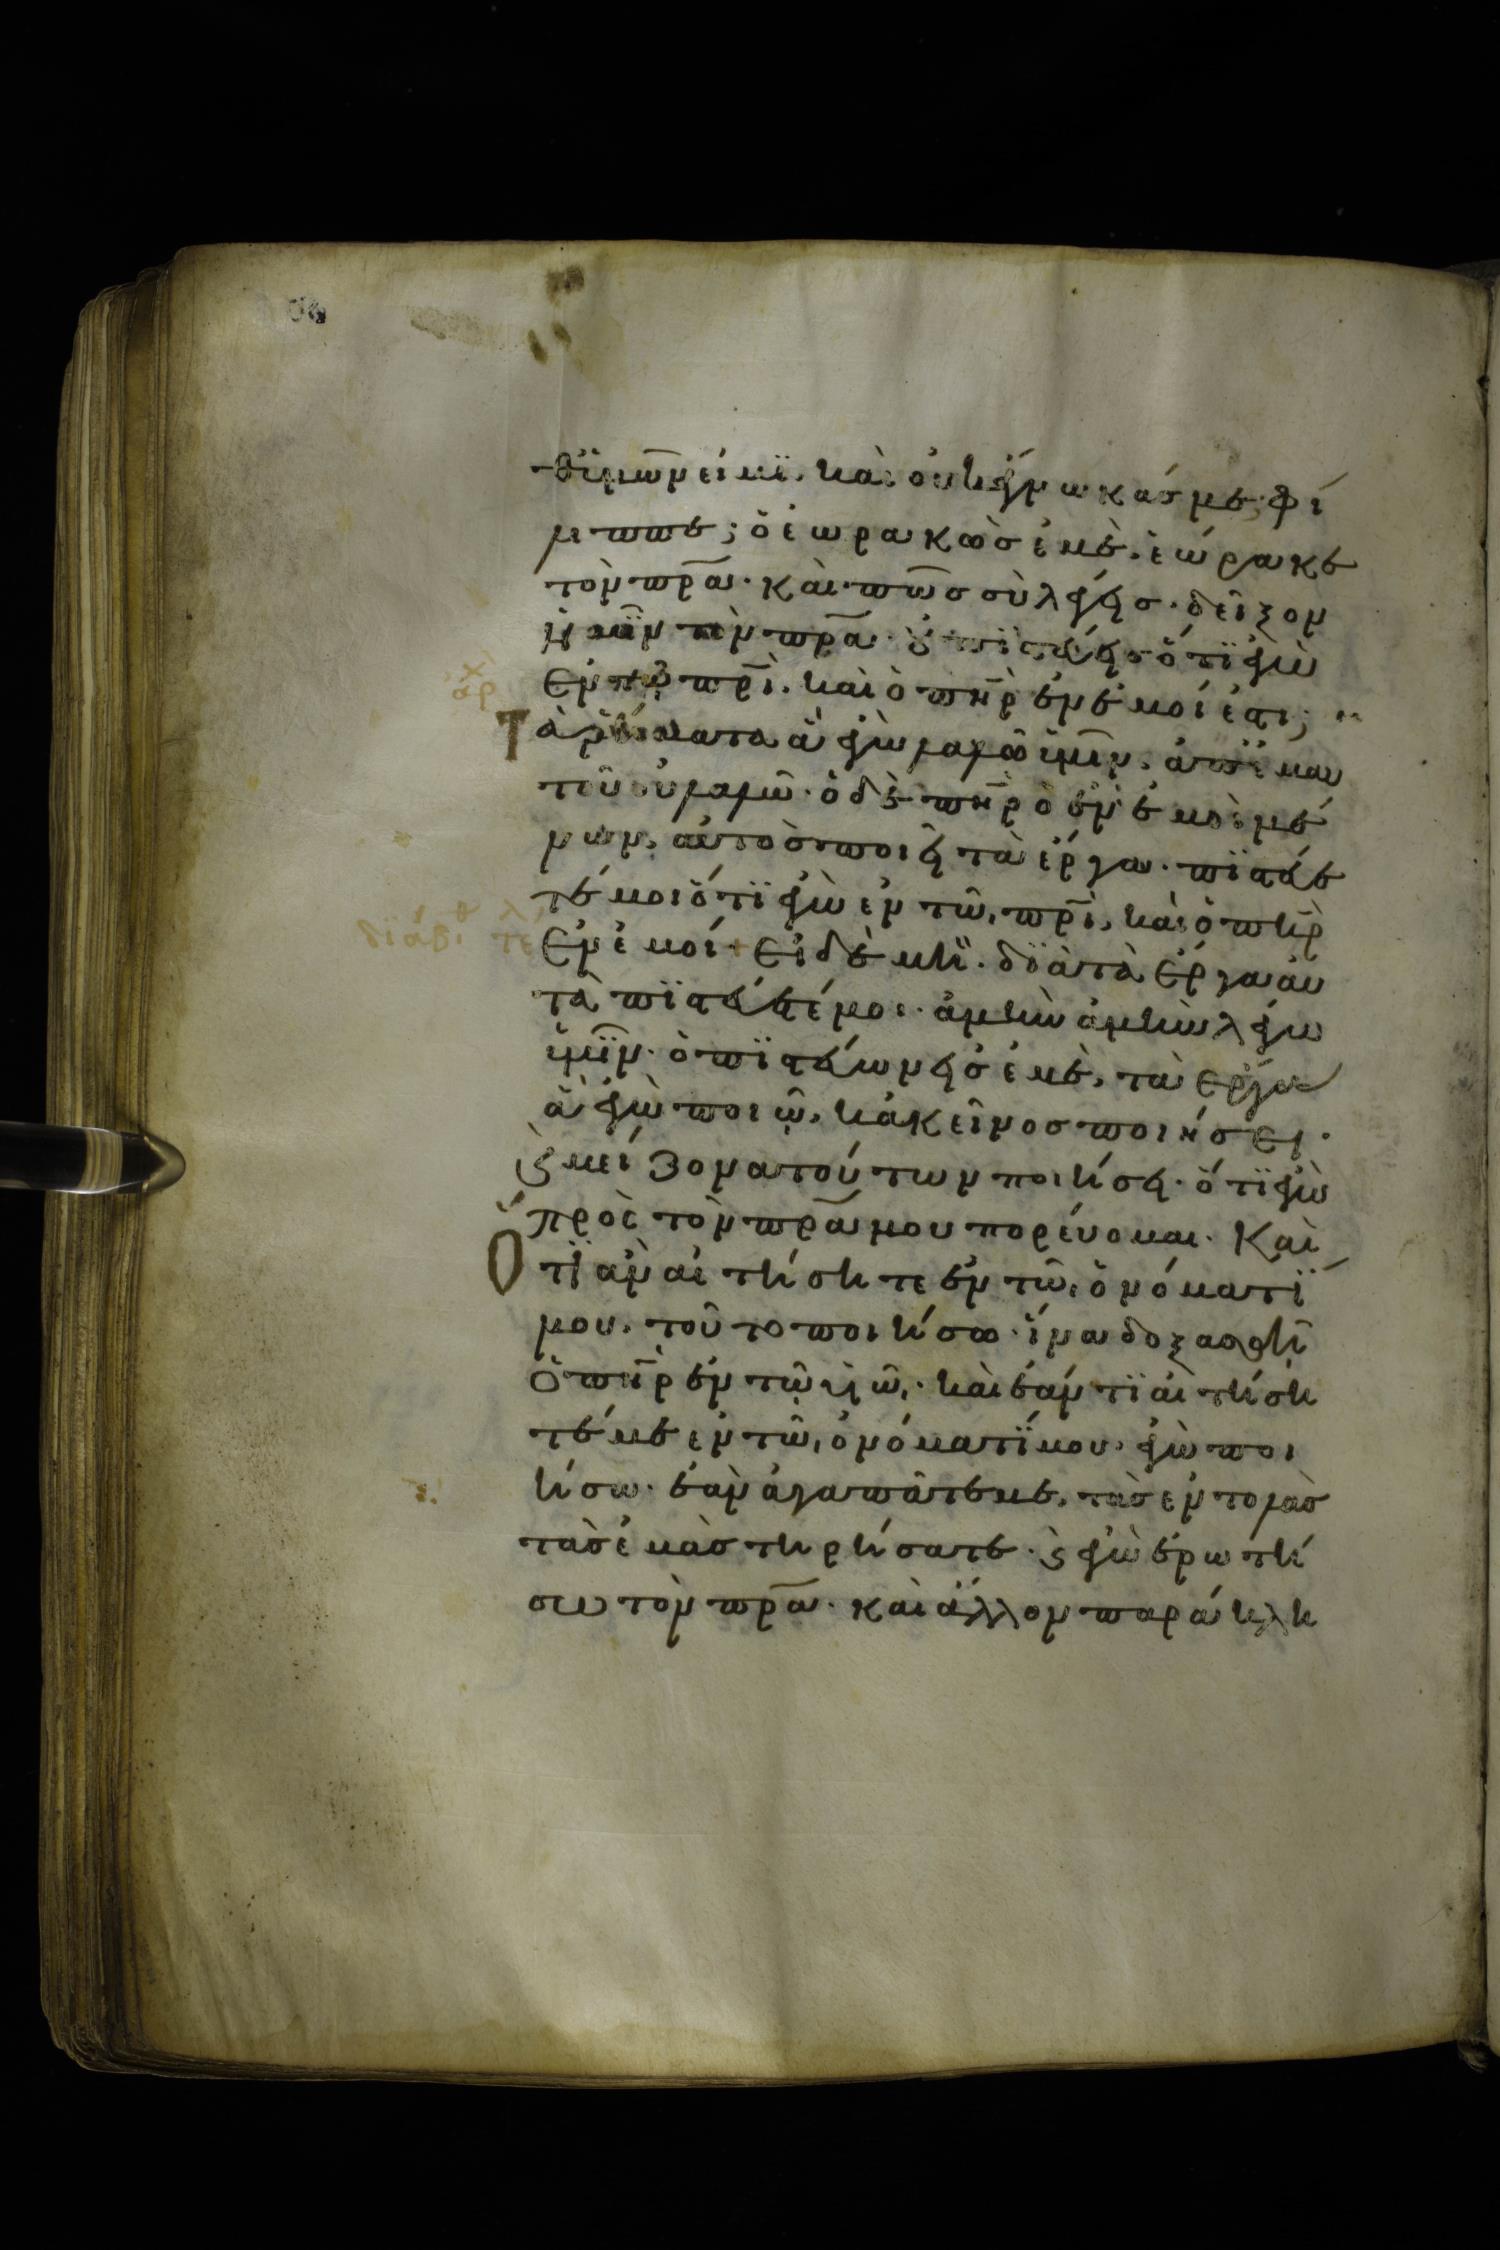 θϋμῶν εἰμϊ. καὶ οὐκ ἔγνωκάσ με φί
λιππε; ὁ ἑωρακὼσ ἐμὲ. ἑώρακε
τὸν πρ̅α. καὶ πῶσ σὺ λέγεισ. δεῖξον
ἡμῖν τὸν πρ̅α. οὐ πϊστεύεισ ὅτϊ ἐγὼ
ἐν τῶ πρ̅ι. καὶ ὁ πη̅ρ ἐν ἐμοί ἐστι;
Τὰ ῥήματα ἃ ἐγὼ λαλῶ ὑμῖν. ἀπ' ἐμαυ
τοῦ οὐ λαλῶ. ὁ δὲ πη̅ρ ὁ ἐν ἐμοὶ μέ
νων. αὐτὸσ ποιεῖ τὰ ἔργα. πϊστεύε
τέ μοι ὅτϊ ἐγὼ ἐν τῶ πρ̅ι. καὶ ὁ πη̅ρ
ἐν ἐμοί + εἰ δὲ μή. δϊὰ τὰ ἔργα αὐ
τὰ πϊστεύετέ μοι. ἀμὴν ἀμὴν λέγω
ὑμῖν. ὁ πϊστεύων εἰσ ἐμὲ. τὰ ἔργα
ἃ ἐγὼ ποιῶ. κἀκεῖνοσ ποιήσει.
ϗ μείζονα τούτων ποιήσει. ὅτϊ ἐγὼ
πρὸς τὸν πρ̅α μου πορεύομαι. Καὶ
Ὅ τϊ ἂν αἰτήσητε ἐν τῶ ὀνόματϊ
μου. τοῦτο ποιήσω. ἵνα δοξασθῆ
ὁ πη̅ρ ἐν τῶ υἱῶ. καὶ ἐάν τϊ αἰτήση
τέ με ἐν τῶ ὀνόματϊ μου. ἐγὼ ποι
ήσω. ἐὰν ἀγαπᾶτέ με. τὰσ ἐντολὰσ
τὰσ ἐμὰσ τηρήσατε. ϗ ἐγὼ ἐρωτή
σω τὸν πρ̅α. καὶ ἄλλον παράκλη